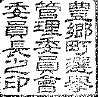 豊郷町選擧
管理委員會
委員長之印